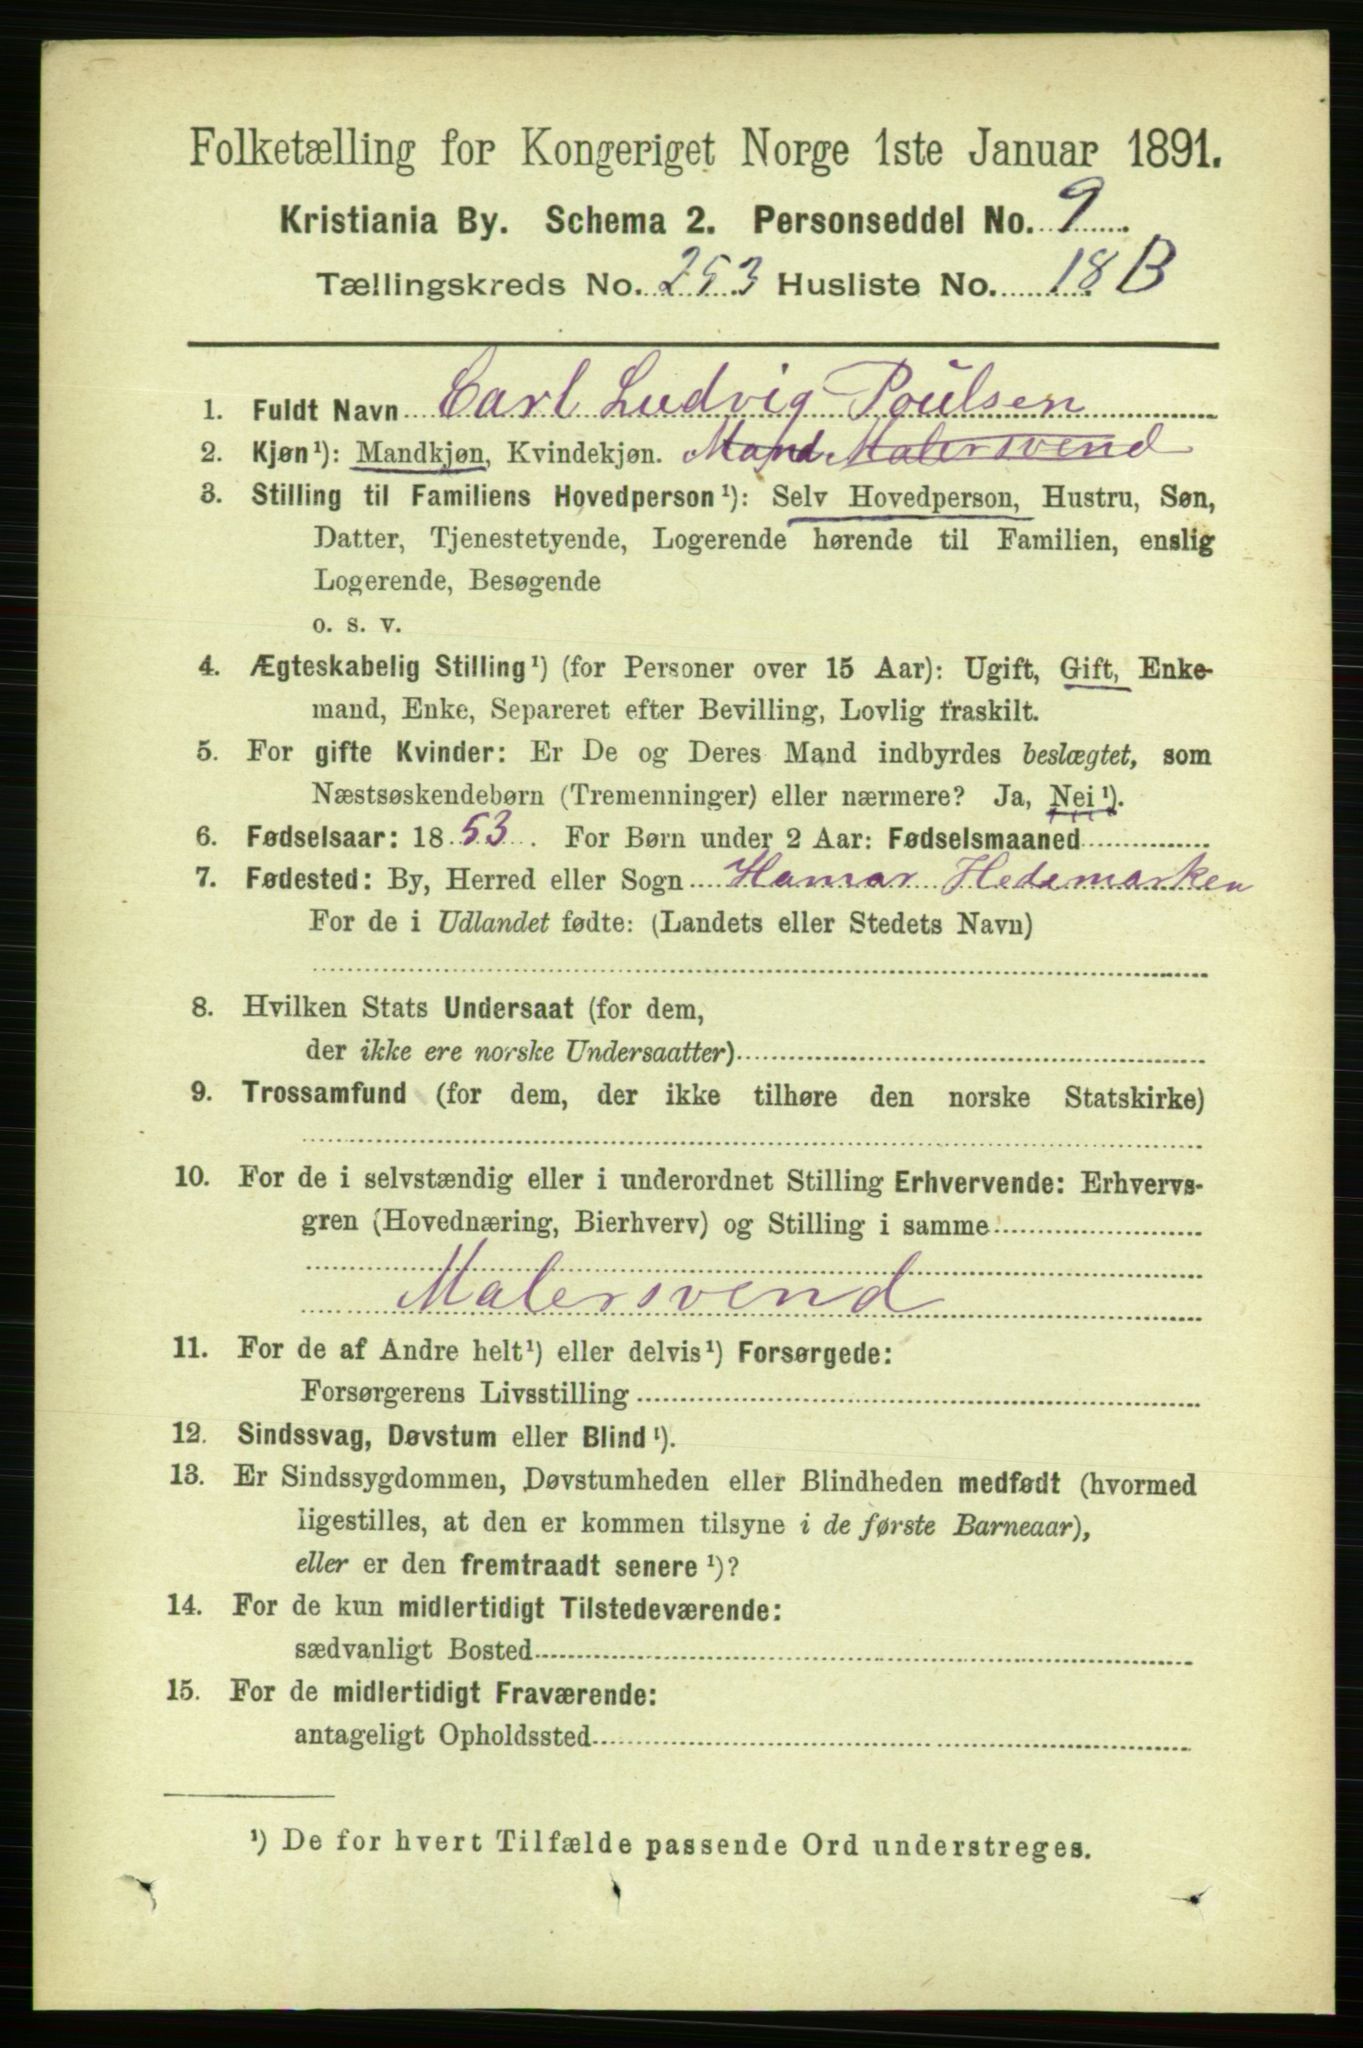 Folketælling for Kongeriget Norge 1ste Januar 1891.
Kristiania By. Schema 2. Personseddel No. 9
Tællingskreds No. 253 Husliste No. 18 B
1. Fuldt Navn Carl Ludvig Poulsen
2. Kjøn¹): Mandkjøn, Kvindekjøn. Mand Malersvend
3. Stilling til Familiens Hovedperson¹): Selv Hovedperson, Hustru, Søn,
Datter, Tjenestetyende, Logerende hørende til Familien, enslig
Logerende, Besøgende
o. s. v.
4. Ægteskabelig Stilling¹) (for Personer over 15 Aar): Ugift, Gift, Enke-
mand, Enke, Separeret efter Bevilling, Lovlig fraskilt.
5. For gifte Kvinder: Er De og Deres Mand indbyrdes beslægtet, som
Næstsøskendebørn (Tremenninger) eller nærmere? Ja, Nei¹).
6. Fødselsaar: 1853. For Børn under 2 Aar: Fødselsmaaned
7. Fødested: By, Herred eller Sogn Hamar Hedemarken
For de i Udlandet fødte: (Landets eller Stedets Navn)
8. Hvilken Stats Undersaat (for dem,
der ikke ere norske Undersaatter)
9. Trossamfund (for dem, der ikke tilhøre den norske Statskirke)
10. For de i selvstændig eller i underordnet Stilling Erhvervende: Erhvervs-
gren (Hovednæring, Bierhverv) og Stilling i samme
Malersvend
11. For de af Andre helt¹) eller delvis¹) Forsørgede:
Forsørgerens Livsstilling
12. Sindssvag, Døvstum eller Blind¹).
13. Er Sindssygdommen, Døvstumheden eller Blindheden medfødt (hvormed
ligestilles, at den er kommen tilsyne i de første Barneaar),
eller er den fremtraadt senere¹)?
14. For de kun midlertidigt Tilstedeværende:
sædvanligt Bosted
15. For de midlertidigt Fraværende:
antageligt Opholdssted
¹) De for hvert Tilfælde passende Ord understreges.